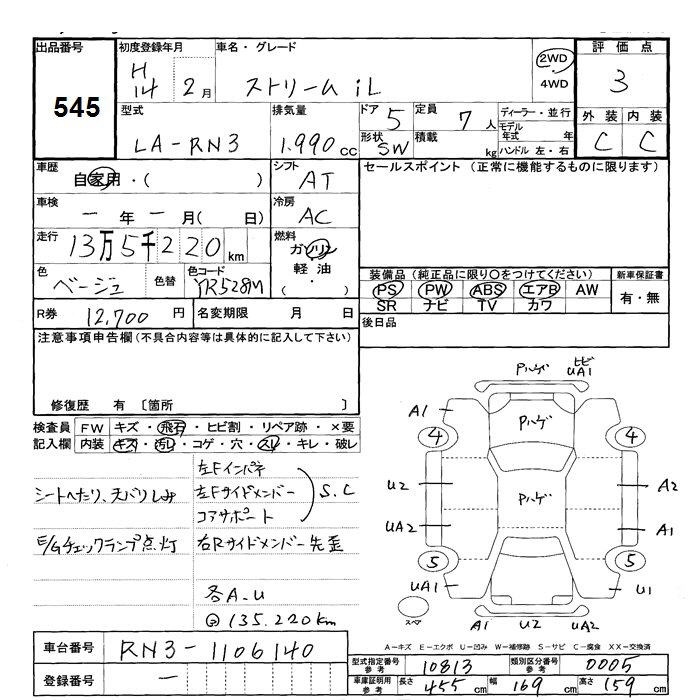 出品番号 初度登録年月 車名・グレード 評価点
545
H14 2月 ストリーム iL 2WD 4WD 3
型式 排気量 ドア 5 定員 7人 ディーラー・並行 外装 内装
モデル年式 年
LA-RN3 1.990cc 形状 SW 積載 kg ハンドル 左・右 C C
車歴 シフト セールスポイント (正常に機能するものに限ります)
自家用・( ) AT
車検 冷房
ー年ー月( 日) AC
走行 燃料
13万5千220km ガソリン
軽油
・
( )
色 色替 色コード 装備品 (純正品に限り○をつけてください) 新車保証書
ベージュ YR528M PS PW ABS エアB AW 有・無
SR ナビ TV カワ
R券 12,700円 名変期限 月 日 後日品
注意事項申告欄(不具合内容等は具体的に記入して下さい)
修復歴 有 〔箇所 〕
検査員 FW キズ・飛石・ヒビ割・リペア跡・×要
記入欄 内装 キズ・汚レ・コゲ・穴・スレ・キレ・破レ
左Fインパネ
シートへたり、天バリしみ 左Fサイドメンバー S.C
コアサポート
E/Gチェックランプ点灯 右Rサイドメンバー先歪
各A.U
@135.220km
Pハゲ ヒビ UA1
A1 Pハゲ
4 4
U2 Pハゲ A2
UA2 A1
5 5
UA1 U1
スペア A1 U2 UA2
A-キズ E-エクボ U-凹み W-補修跡 S-サビ C-腐食 XX-交換済
車台番号 RN3-1106140
型式指定番号 参考 10813 類別区分番号 参考 0005
登録番号 ー
車庫証明用 参考 長さ 455cm 幅 169cm 高さ 159cm